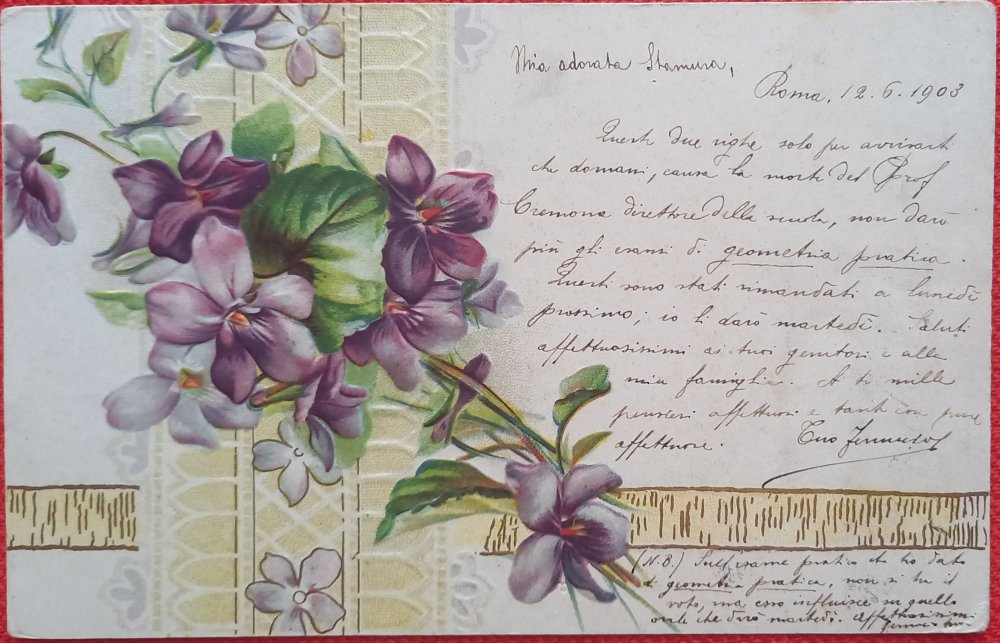 Mia adorata Stamura,
Roma, 12.6.1903
Questi due righe solo per avvisarti
che domani, causa la morte del Prof
Cremona direttore della scuola, non darò
più gli esami di geometria pratica.
Questi sono stati rimandati a lunedì
prossimo; io li darò martedì. Saluti
affettuosissimi ai tuoi genitori e alla
mia famiglia. A te mille
pensieri affettuosi e tante cose pure
affettuose. Tuo
(N.B.) Sull'esame pratico che ho dato
di geometria pratica, non si ha il
voto, ma esso influisce su quello
orale che darò martedì. Affettuosissimi